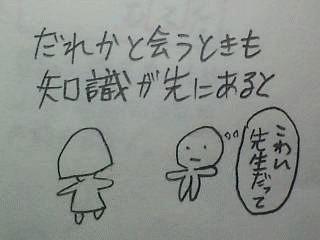 だれかと会うときも
知識が先にあると
こわい
先生だって